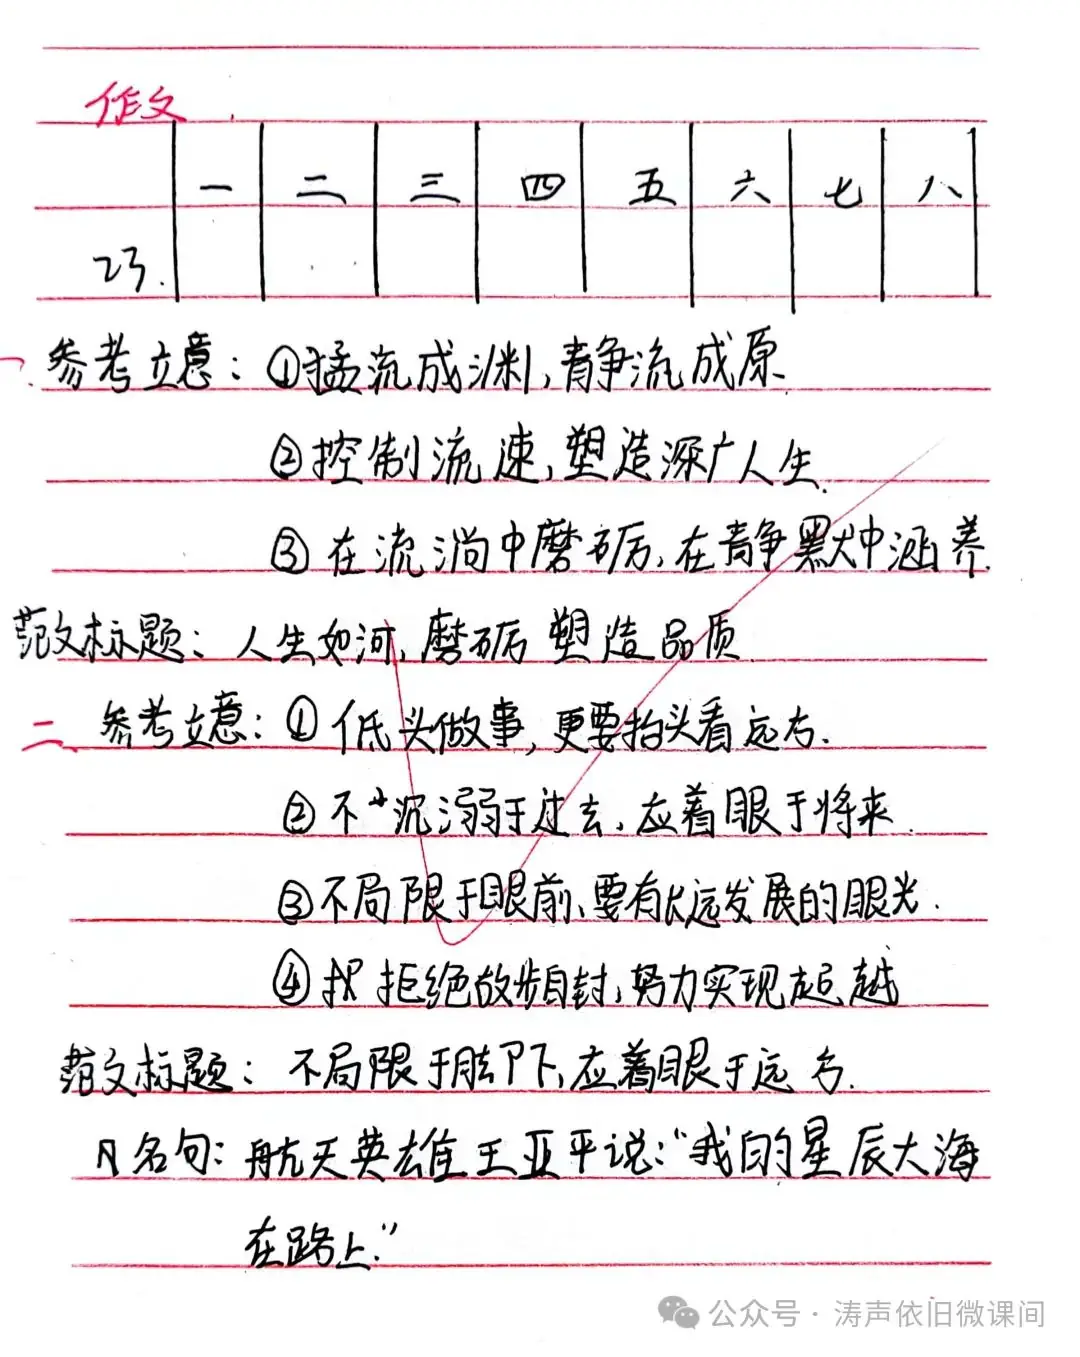 作文
一 二 三 四 五 六 七 八
23.
一. 参考立意：①猛流成渊，静流成原
②控制流速，塑造深广人生.
③在流淌中磨砺，在静默中涵养.
范文标题：人生如河，磨砺塑造品质
二. 参考立意：①低头做事，更要抬头看远方.
②不沉溺于过去，应着眼于将来.
③不局限于眼前，要有长远发展的眼光.
④拒绝故步自封，努力实现超越
范文标题：不局限于脚下，应着眼于远方.
名句：航天英雄王亚平说：“我的星辰大海
在路上.”
公众号·涛声依旧微课间